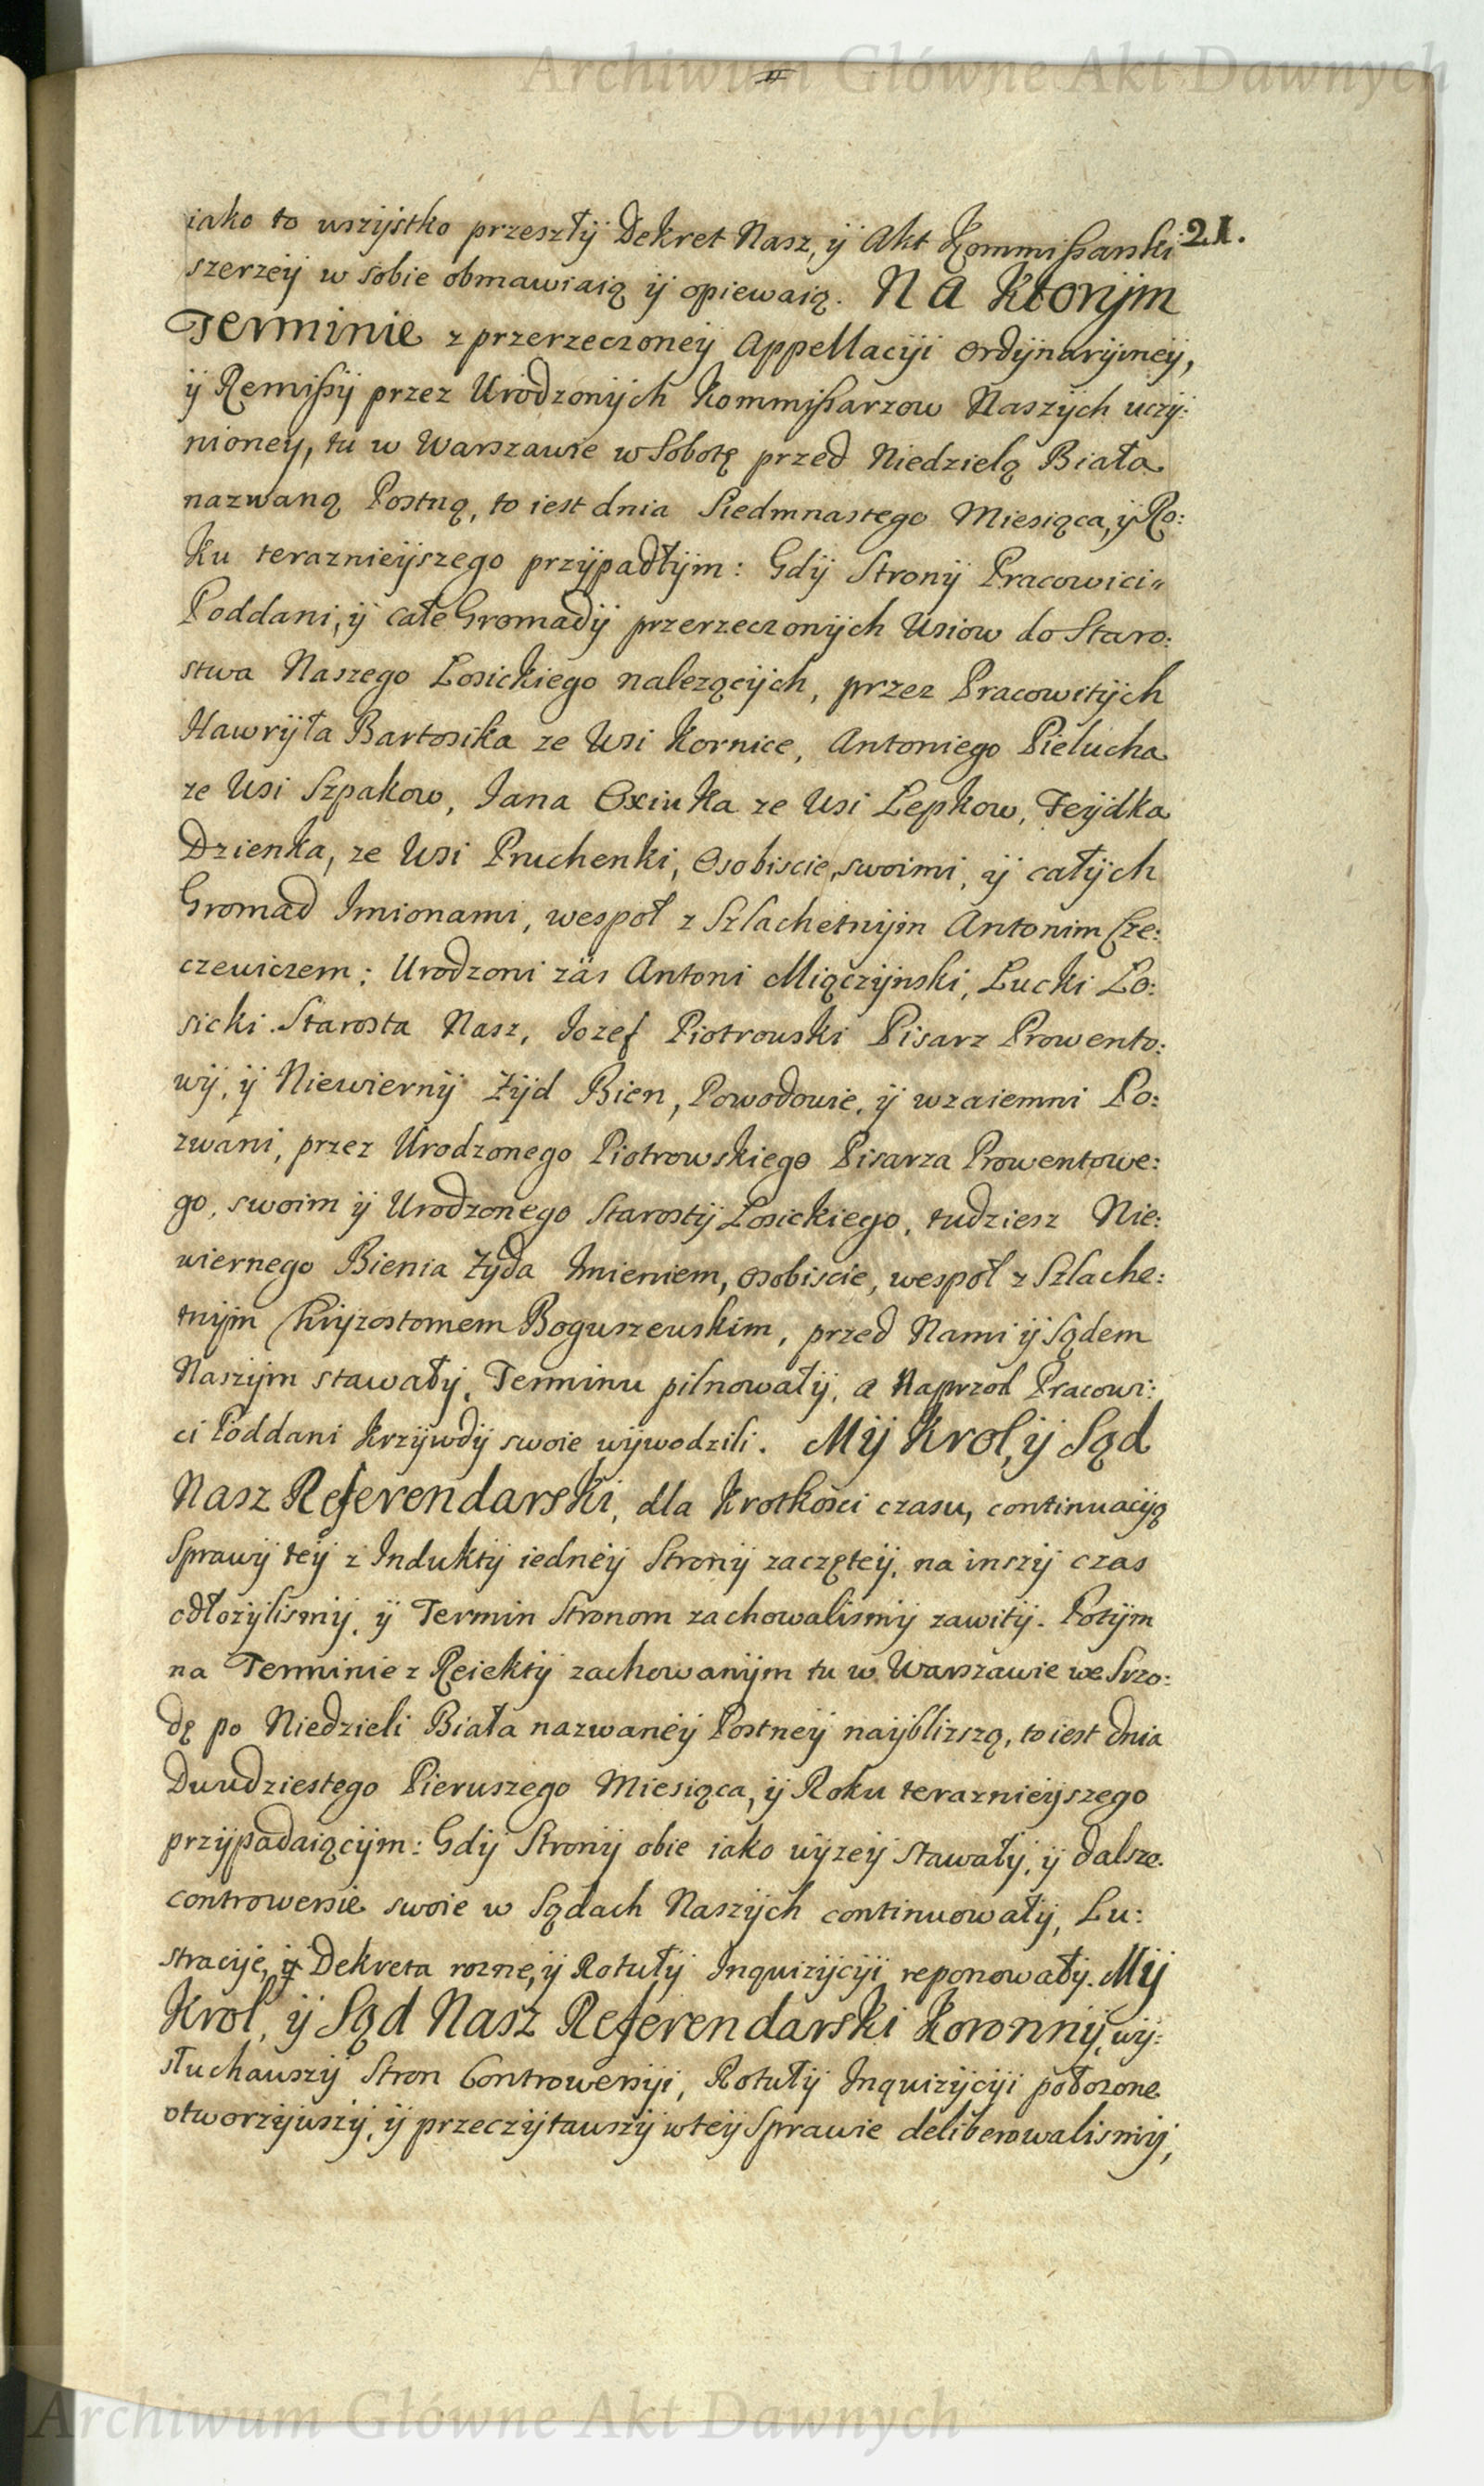 Archiwum Główne Akt Dawnych
21.
iako to wszÿstko przeszłÿ Dekret Nasz, ÿ Akt Kommißarski
szerzeÿ w sobie obmawiaią ÿ opiewaią. Na Ktorÿm
Terminie z przerzeczoneÿ Appellacÿi Ordÿnarÿineÿ,
ÿ Remißÿ przez Urodzonÿch Kommißarzow Naszÿch uczÿ:
nioneÿ, tu w Warszawie w Sobotę przed Niedzielą Biała
nazwaną Postną, to iest dnia Siedmnastego Miesiąca, ÿ Ro:
Ku teraznieÿszego przÿpadłÿm: Gdÿ Stronÿ Pracowici
Poddani, ÿ całe Gromadÿ przerzeczonÿch Wsiow do Staro:
stwa Naszego Łosickiego nalezącÿch, przez Pracowitÿch
Hawrÿła Bartosika ze Wsi Kornice, Antoniego Pielucha
ze Wsi Szpakow, Iana OxiuKa ze Wsi Lepkow, Feÿdka
Dzienka, ze Wsi Pruchenki, Osobiscie, swoimi, ÿ całÿch
Gromad Imionami, wespoł z Szlachetnÿm Antonim Cze:
czewiczem; Urodzoni zás Antoni Miączÿnski, Łucki Ło:
sicki Starosta Nasz, Iozef Piotrowski Pisarz Prowento:
wÿ, ÿ Niewiernÿ Żÿd Bien, Powodowie, ÿ wzaiemni Po:
zwani, przez Urodzonego Piotrowskiego Pisarza Prowentowe:
go, swoim ÿ Urodzonego Starostÿ Łosickiego, tudziesz Nie:
wiernego Bienia Zÿda Imieniem, osobiscie, wespoł z Szlache:
tnÿm Chrÿzostomem Boguszewskim, przed Nami ÿ Sądem
Naszÿm stawałÿ, Terminu pilnowałÿ, a Naprzod Pracowi:
ci Poddani Krzÿwdÿ swoie wÿwodzili. Mÿ Krol, ÿ Sąd
Nasz Referendarski, dla Krotkosci czasu, continuacÿą
Sprawÿ teÿ z Induktÿ iedneÿ Stronÿ zaczęteÿ, na inszÿ czas
odłozÿlismÿ, ÿ Termin Stronom zachowalismÿ zawitÿ. Potÿm
na Terminie z Reiektÿ zachowanÿm tu w Warszawie we Srzo:
dę po Niedzieli Biała nazwaneÿ Postneÿ naÿblizszą, to iest dnia
Dwudziestego Pierwszego Miesiąca, ÿ Roku teraznieÿszego
przÿpadaiącÿm: Gdÿ Stronÿ obie iako wÿzeÿ stawałÿ, ÿ dalsze
controwersie swoie w Sądach Naszÿch continuowałÿ, Lu:
stracÿie, ÿ Dekreta rozne, ÿ Rotułÿ Inquizÿcÿi reponowałÿ. Mÿ
Krol, ÿ Sąd Nasz Referendarski Koronnÿ, wÿ:
słuchawszÿ Stron Controwersÿi, Rotułÿ Inquizÿcÿi połozone
otworzÿwszÿ, ÿ przeczÿtawszÿ w teÿ Sprawie deliberowalismÿ,
Archiwum Główne Akt Dawnych